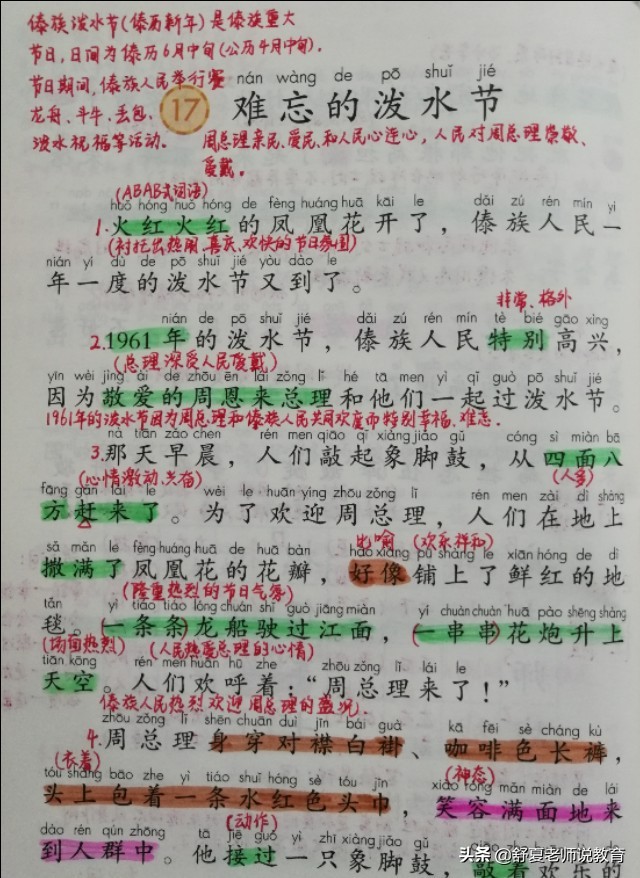 傣族泼水节(傣历新年)是傣族重大
节日,日间为傣历6月中旬(公历4月中旬).
节日期间,傣族人民举行赛
龙舟、斗牛、丢包、
泼水祝福等活动.
nán wàng de pō shuǐ jié
17 难忘的泼水节
周总理亲民、爱民、和人民心连心,人民对周总理崇敬、
爱戴。
(ABAB式词语)
huǒ hóng huǒ hóng de fèng huáng huā kāi le dǎi zú rén mín yì
1.火红火红的凤凰花开了，傣族人民一
(衬托出热闹、喜庆、欢快的节日氛围)
nián yí dù de pō shuǐ jié yòu dào le
年一度的泼水节又到了。
非常、格外
nián de pō shuǐ jié dǎi zú rén mín tè bié gāo xìng
2.1961年的泼水节，傣族人民特别高兴，
(总理深受人民爱戴)
yīn wèi jìng ài de zhōu ēn lái zǒng lǐ hé tā men yì qǐ guò pō shuǐ jié
因为敬爱的周恩来总理和他们一起过泼水节。
1961年的泼水节因为周总理和傣族人民共同欢度而特别幸福、难忘.
nà tiān zǎo chen rén men qiāo qǐ xiàng jiǎo gǔ cóng sì miàn bā
3.那天早晨，人们敲起象脚鼓，从四面八
(心情激动、兴奋)
(人多)
fāng gǎn lái le wèi le huān yíng zhōu zǒng lǐ rén men zài dì shàng
方赶来了。为了欢迎周总理，人们在地上
比喻 (欢乐祥和)
sǎ mǎn le fèng huáng huā de huā bàn hǎo xiàng pū shàng le xiān hóng de dì
撒满了凤凰花的花瓣，好像铺上了鲜红的地
(隆重热烈的节日气氛)
tǎn yì tiáo tiáo lóng chuán shǐ guò jiāng miàn yí chuàn chuàn huā pào shēng shàng
毯。(一条条)龙船驶过江面，(一串串)花炮升上
(场面热烈) (人民热爱总理的心情)
tiān kōng rén men huān hū zhe zhōu zǒng lǐ lái le
天空。人们欢呼着：“周总理来了！”
傣族人民热烈欢迎周总理的盛况.
zhōu zǒng lǐ shēn chuān duì jīn bái guà kā fēi sè cháng kù
4.周总理身穿对襟白褂、咖啡色长裤，
(衣着)
tóu shàng bāo zhe yì tiáo shuǐ hóng sè tóu jīn xiào róng mǎn miàn de lái
头上包着一条水红色头巾，笑容满面地来
(神态)
(动作)
dào rén qún zhōng tā jiē guò yì zhī xiàng jiǎo gǔ
到人群中。他接过一只象脚鼓，敲着欢乐的
头条 @舒夏老师说教育